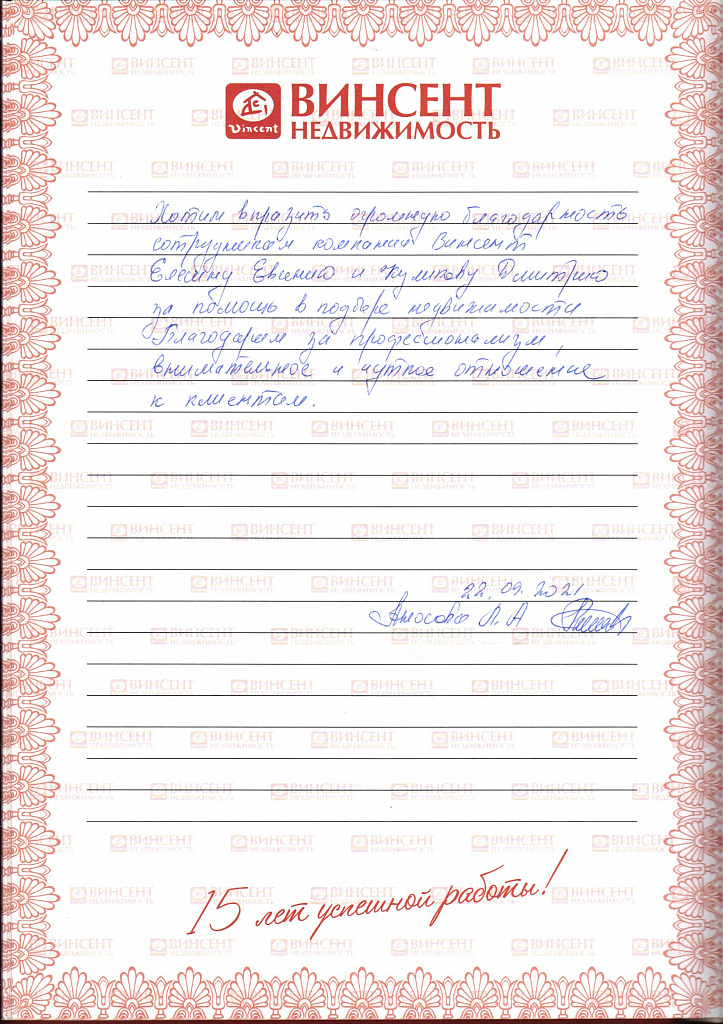 Vincent
ВИНСЕНТ
НЕДВИЖИМОСТЬ
Хотим выразить огромную благодарность
сотрудникам компании Винсент
Евгению и Куликову Дмитрию
за помощь в подборе недвижимости
Благодарим за профессионализм,
внимательное и чуткое отношение
к клиентам.
22.09.2021
Л.А
15 лет успешной работы!